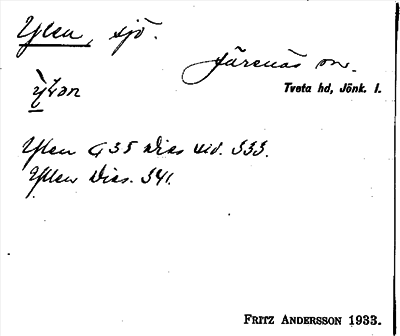 Ylen, sjö.
Järsnäs sn.
Tveta hd, Jönk. l.
Ylen G 35 Diss sid. 333.
Ylen Diss. 341.
FRITZ ANDERSSON 1933.